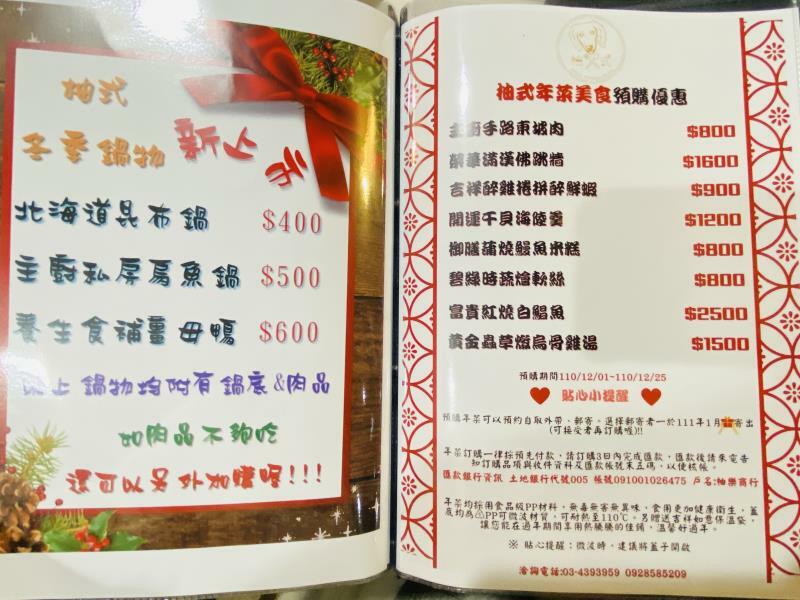 柚式
冬季鍋物 新上市
北海道昆布鍋 $400
主廚私房烏魚鍋 $500
養生食補薑母鴨 $600
以上鍋物均附有鍋底&肉品
如肉品不夠吃
還可以另外加購喔!!!
柚式年菜美食預購優惠
主廚手路東坡肉 $800
榮華滿漢佛跳牆 $1600
吉祥醉雞捲拼醉鮮蝦 $900
開運干貝海陸羹 $1200
御膳蒲燒鰻魚米糕 $800
碧綠時蔬燴軟絲 $800
富貴紅燒白鯧魚 $2500
黃金蟲草燉烏骨雞湯 $1500
預購期間110/12/01~110/12/25
貼心小提醒
預購年菜可以預約自取外帶、郵寄。選擇郵寄者一於111年1月 寄出
(可接受者再訂購喔)!!
年菜訂購一律採預先付款,請訂購3日內完成匯款,匯款後請來電告
知訂購品項與收件資料及匯款帳號末五碼,以便核帳。
匯款銀行資訊 土地銀行代號005 帳號091001026475 戶名:柚樂商行
年菜均採用食品級PP材料,無毒無害無異味,食用更加健康衛生,蓋
底均為♷PP可微波材質,可耐熱至110℃。另贈送吉祥如意保溫袋,
讓您能在過年期間享用熱騰騰的佳餚,溫馨好過年。
※ 貼心提醒:微波時,建議將蓋子開啟
洽詢電話:03-4393959 0928585209